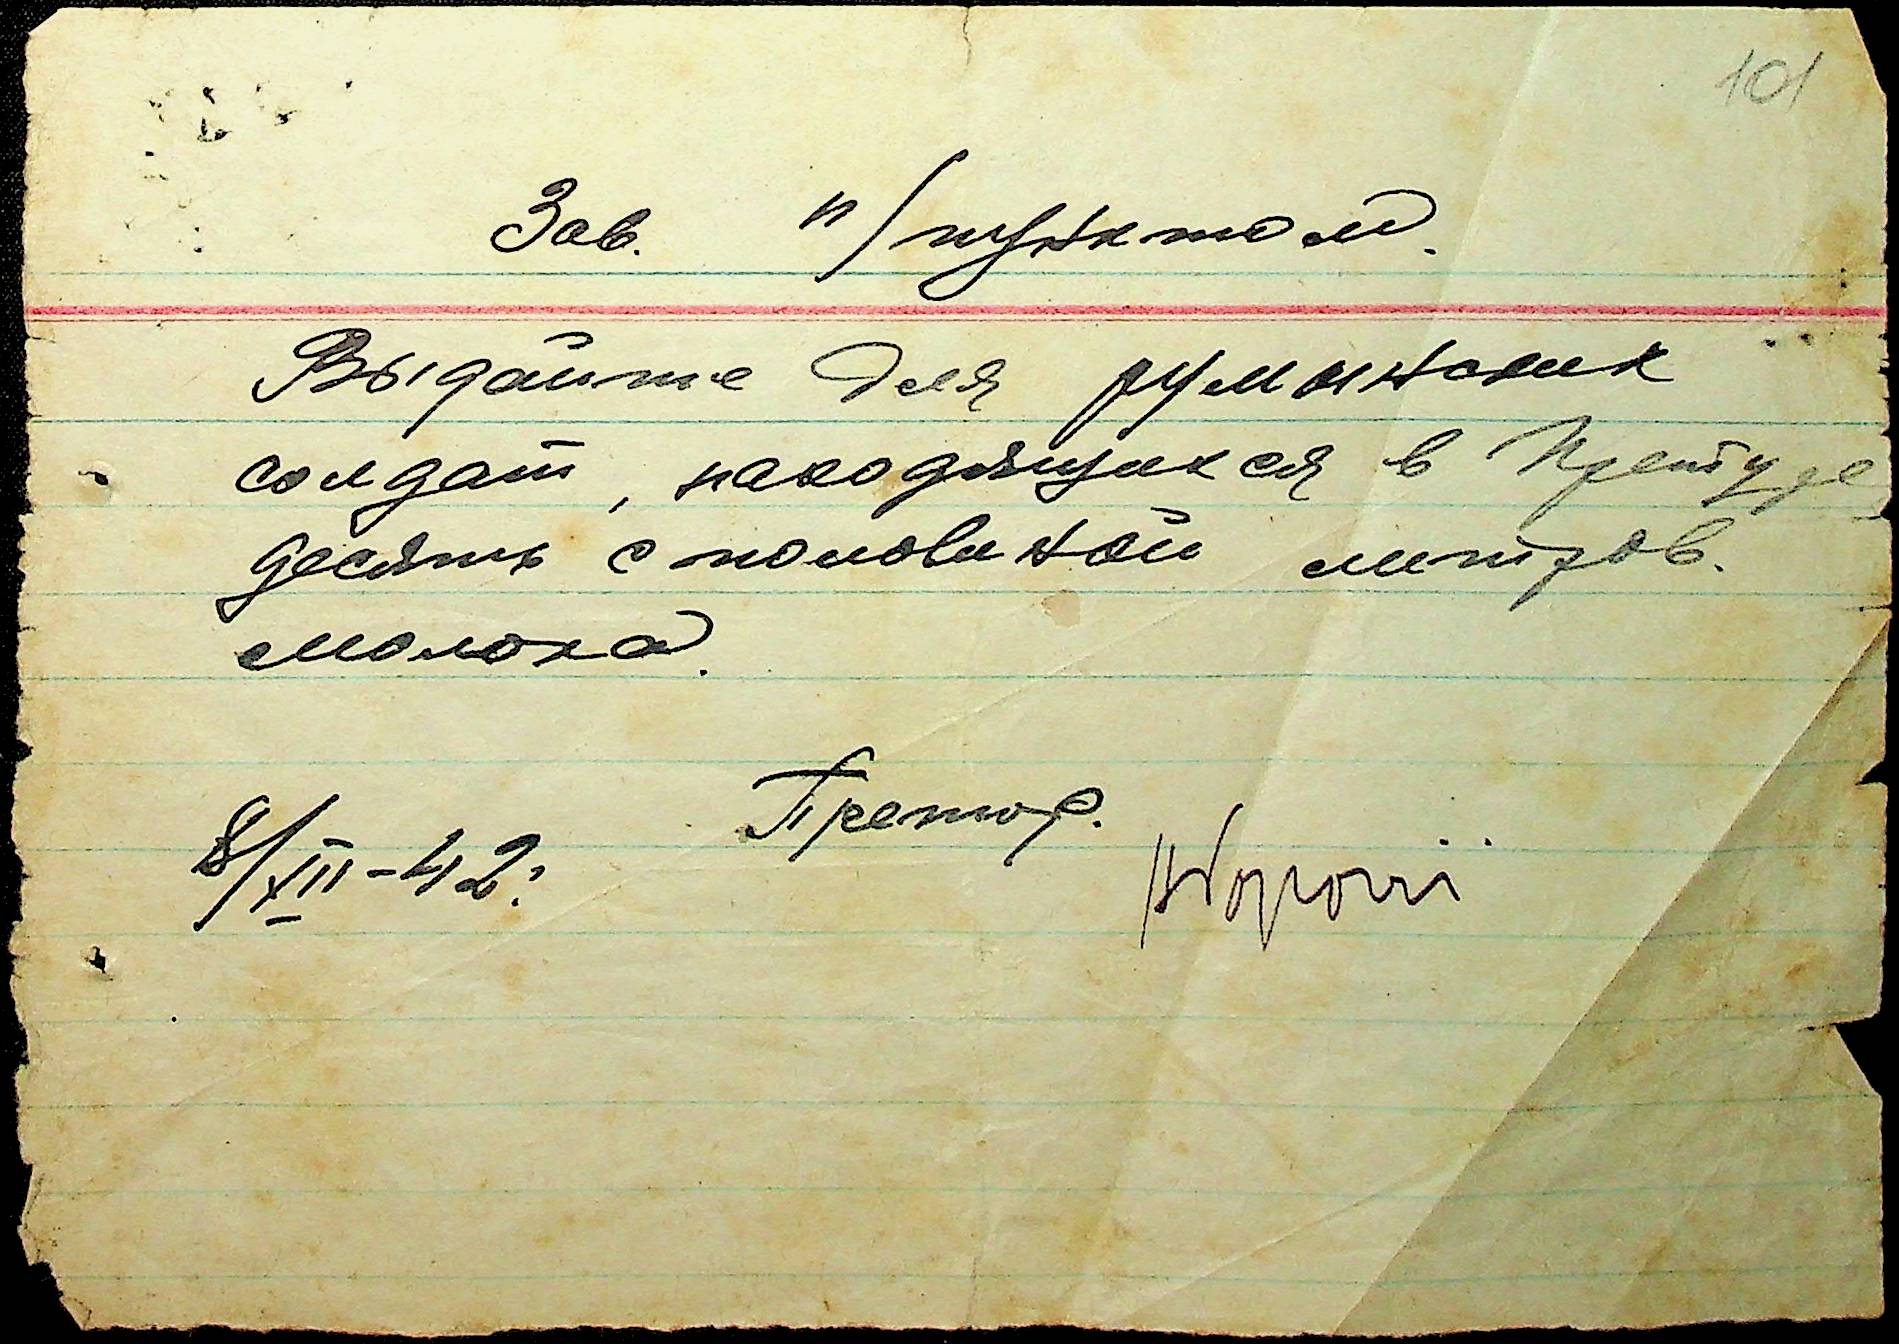 101
Зав. п/пунктом.
Выдайте для румынских
солдат, находящихся в Претуре
десять с половиной литров.
молока.
Претор.
8/XII-42г.